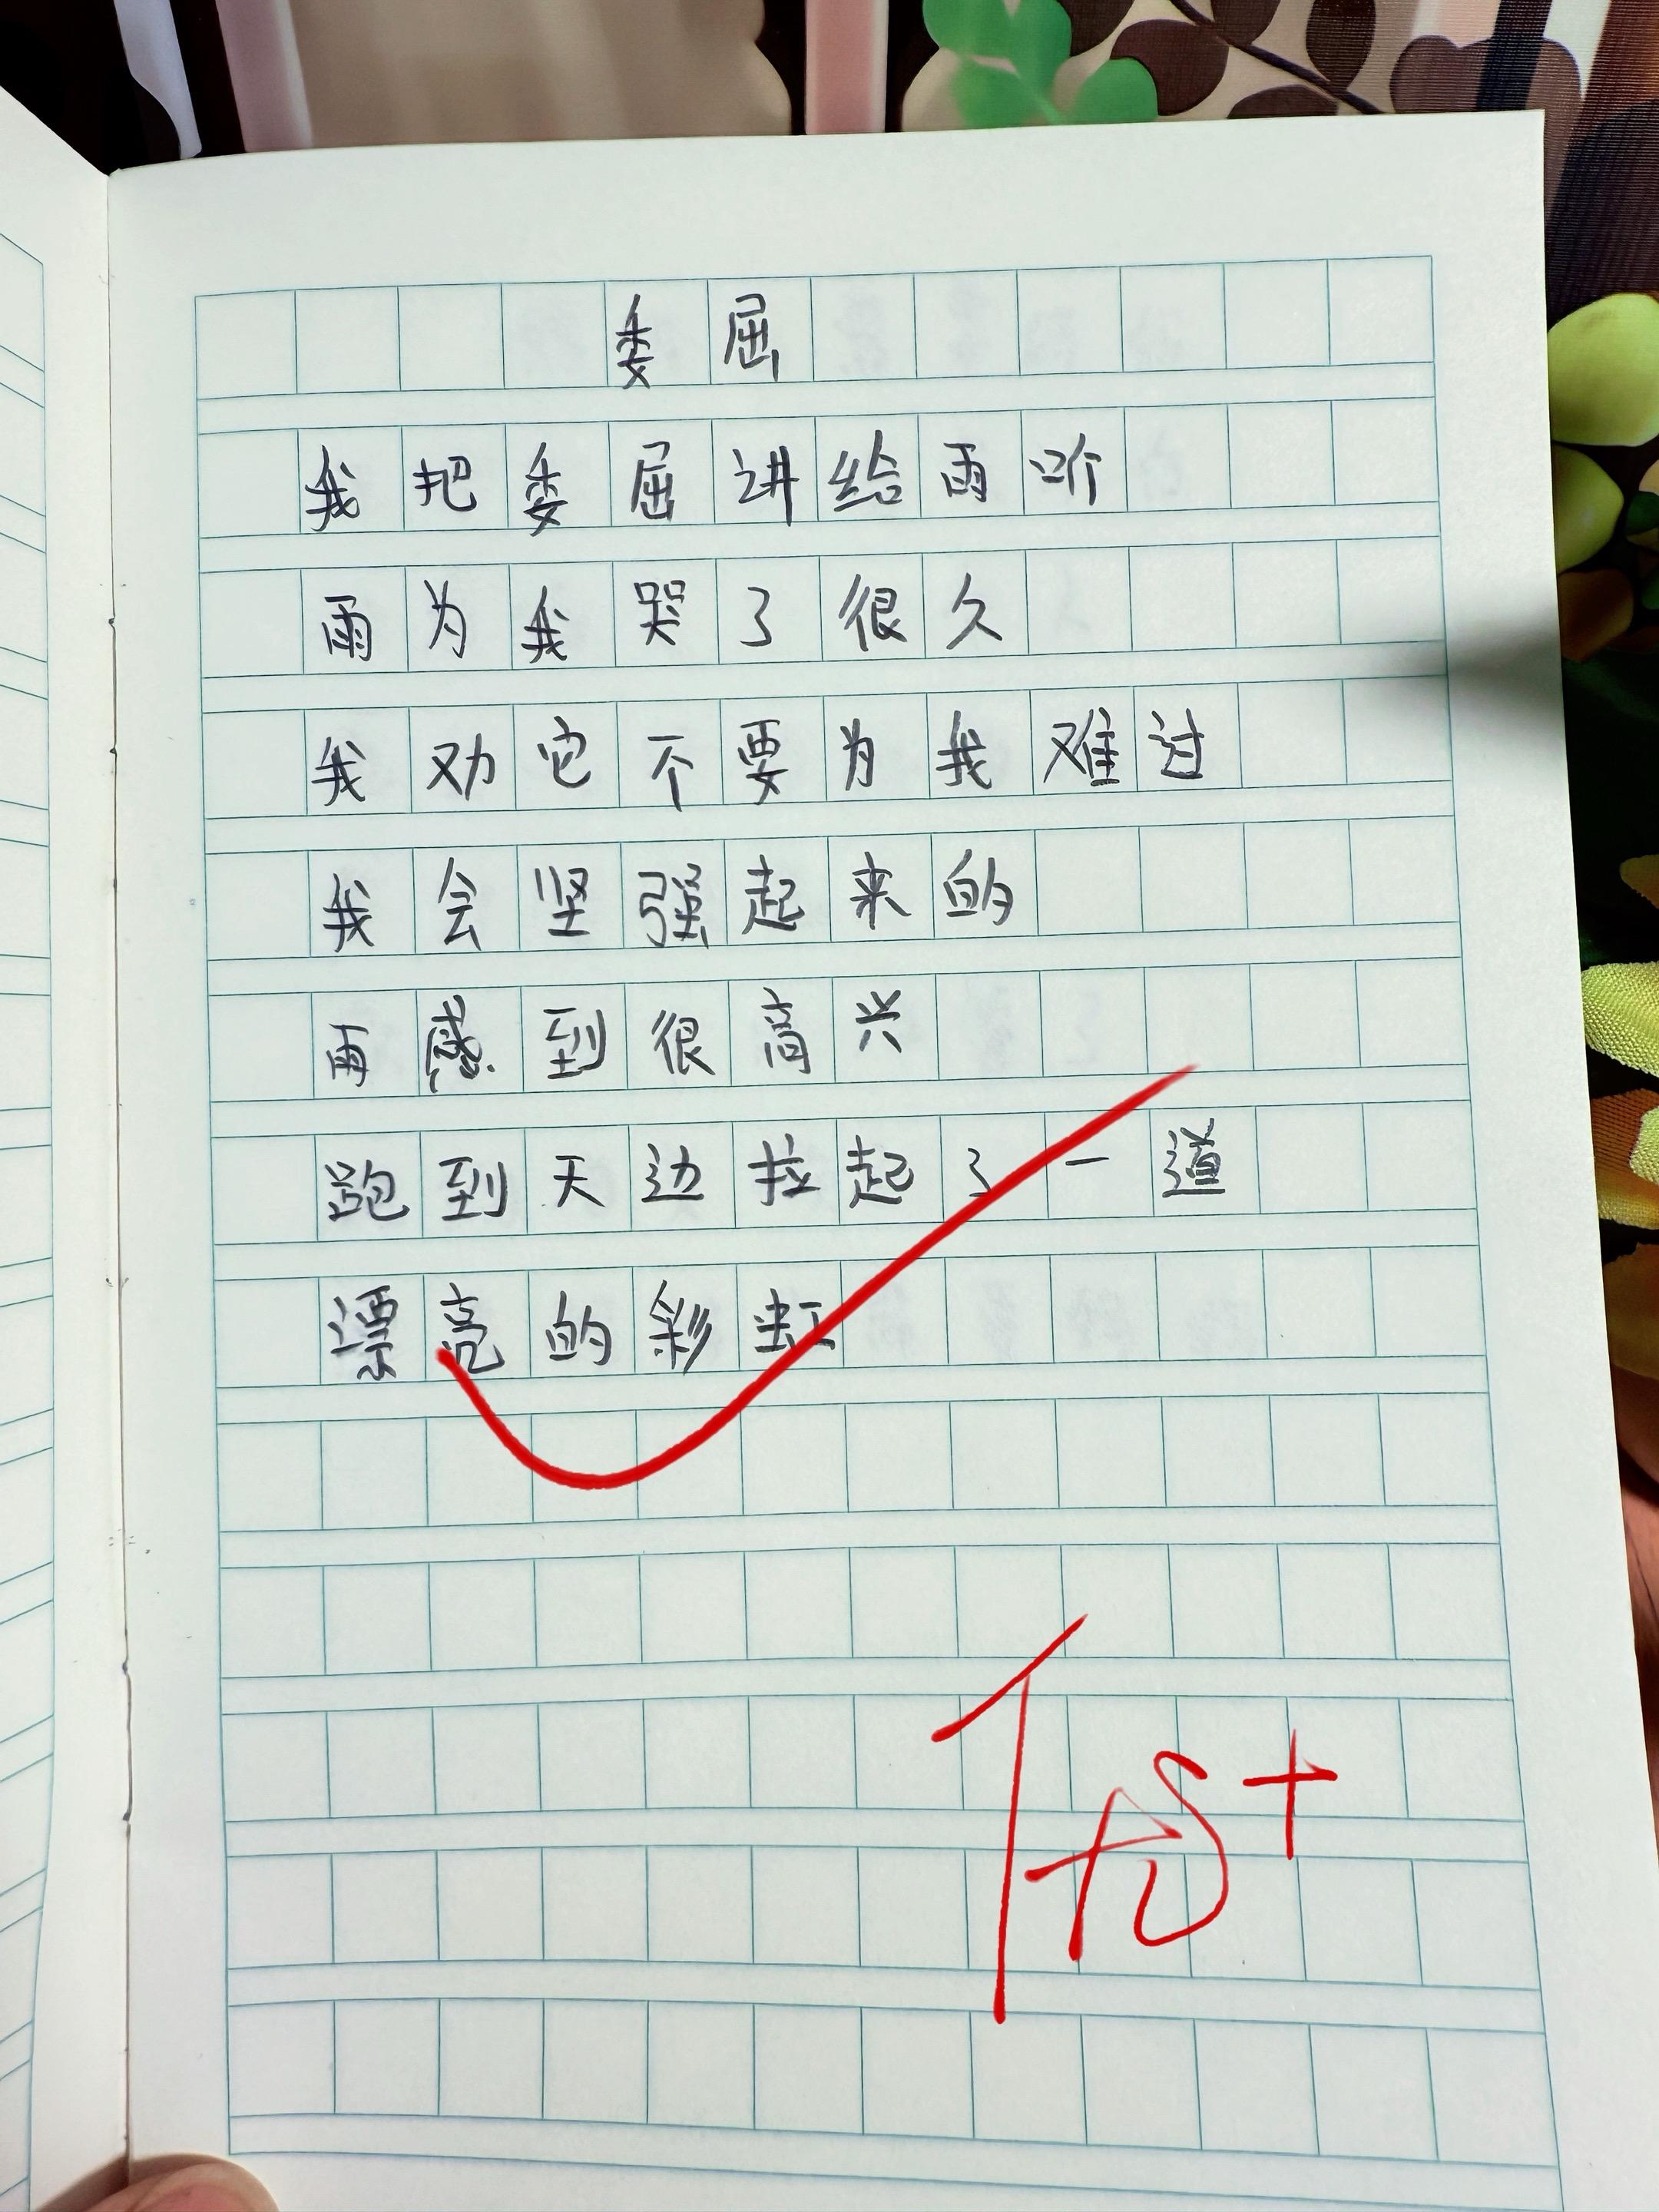 委屈
我把委屈讲给雨听
雨为我哭了很久
我劝它不要为我难过
我会坚强起来的
雨感到很高兴
跑到天边拉起了一道
漂亮的彩虹
优+